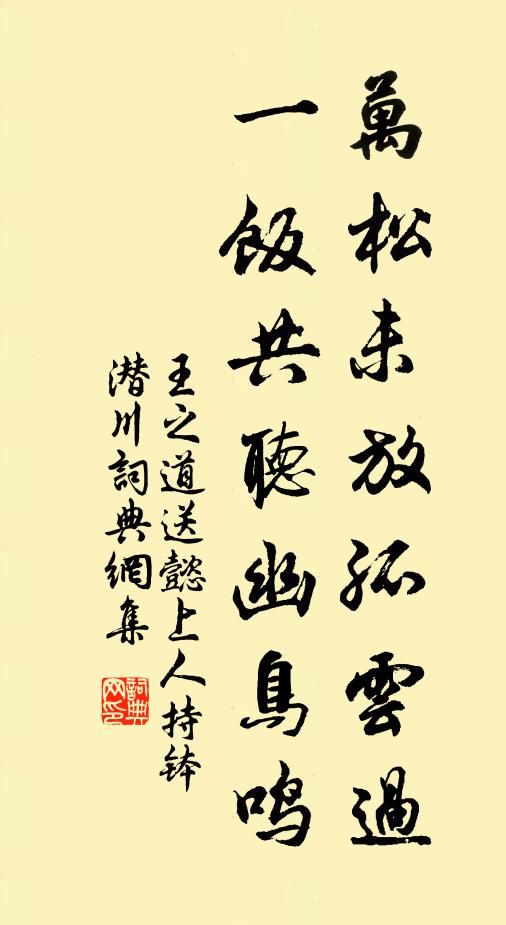 萬松未放孤雲過
一飯共聽幽鳥鳴
王之道送懿上人持钵
潜川詞典網集
詞典网印